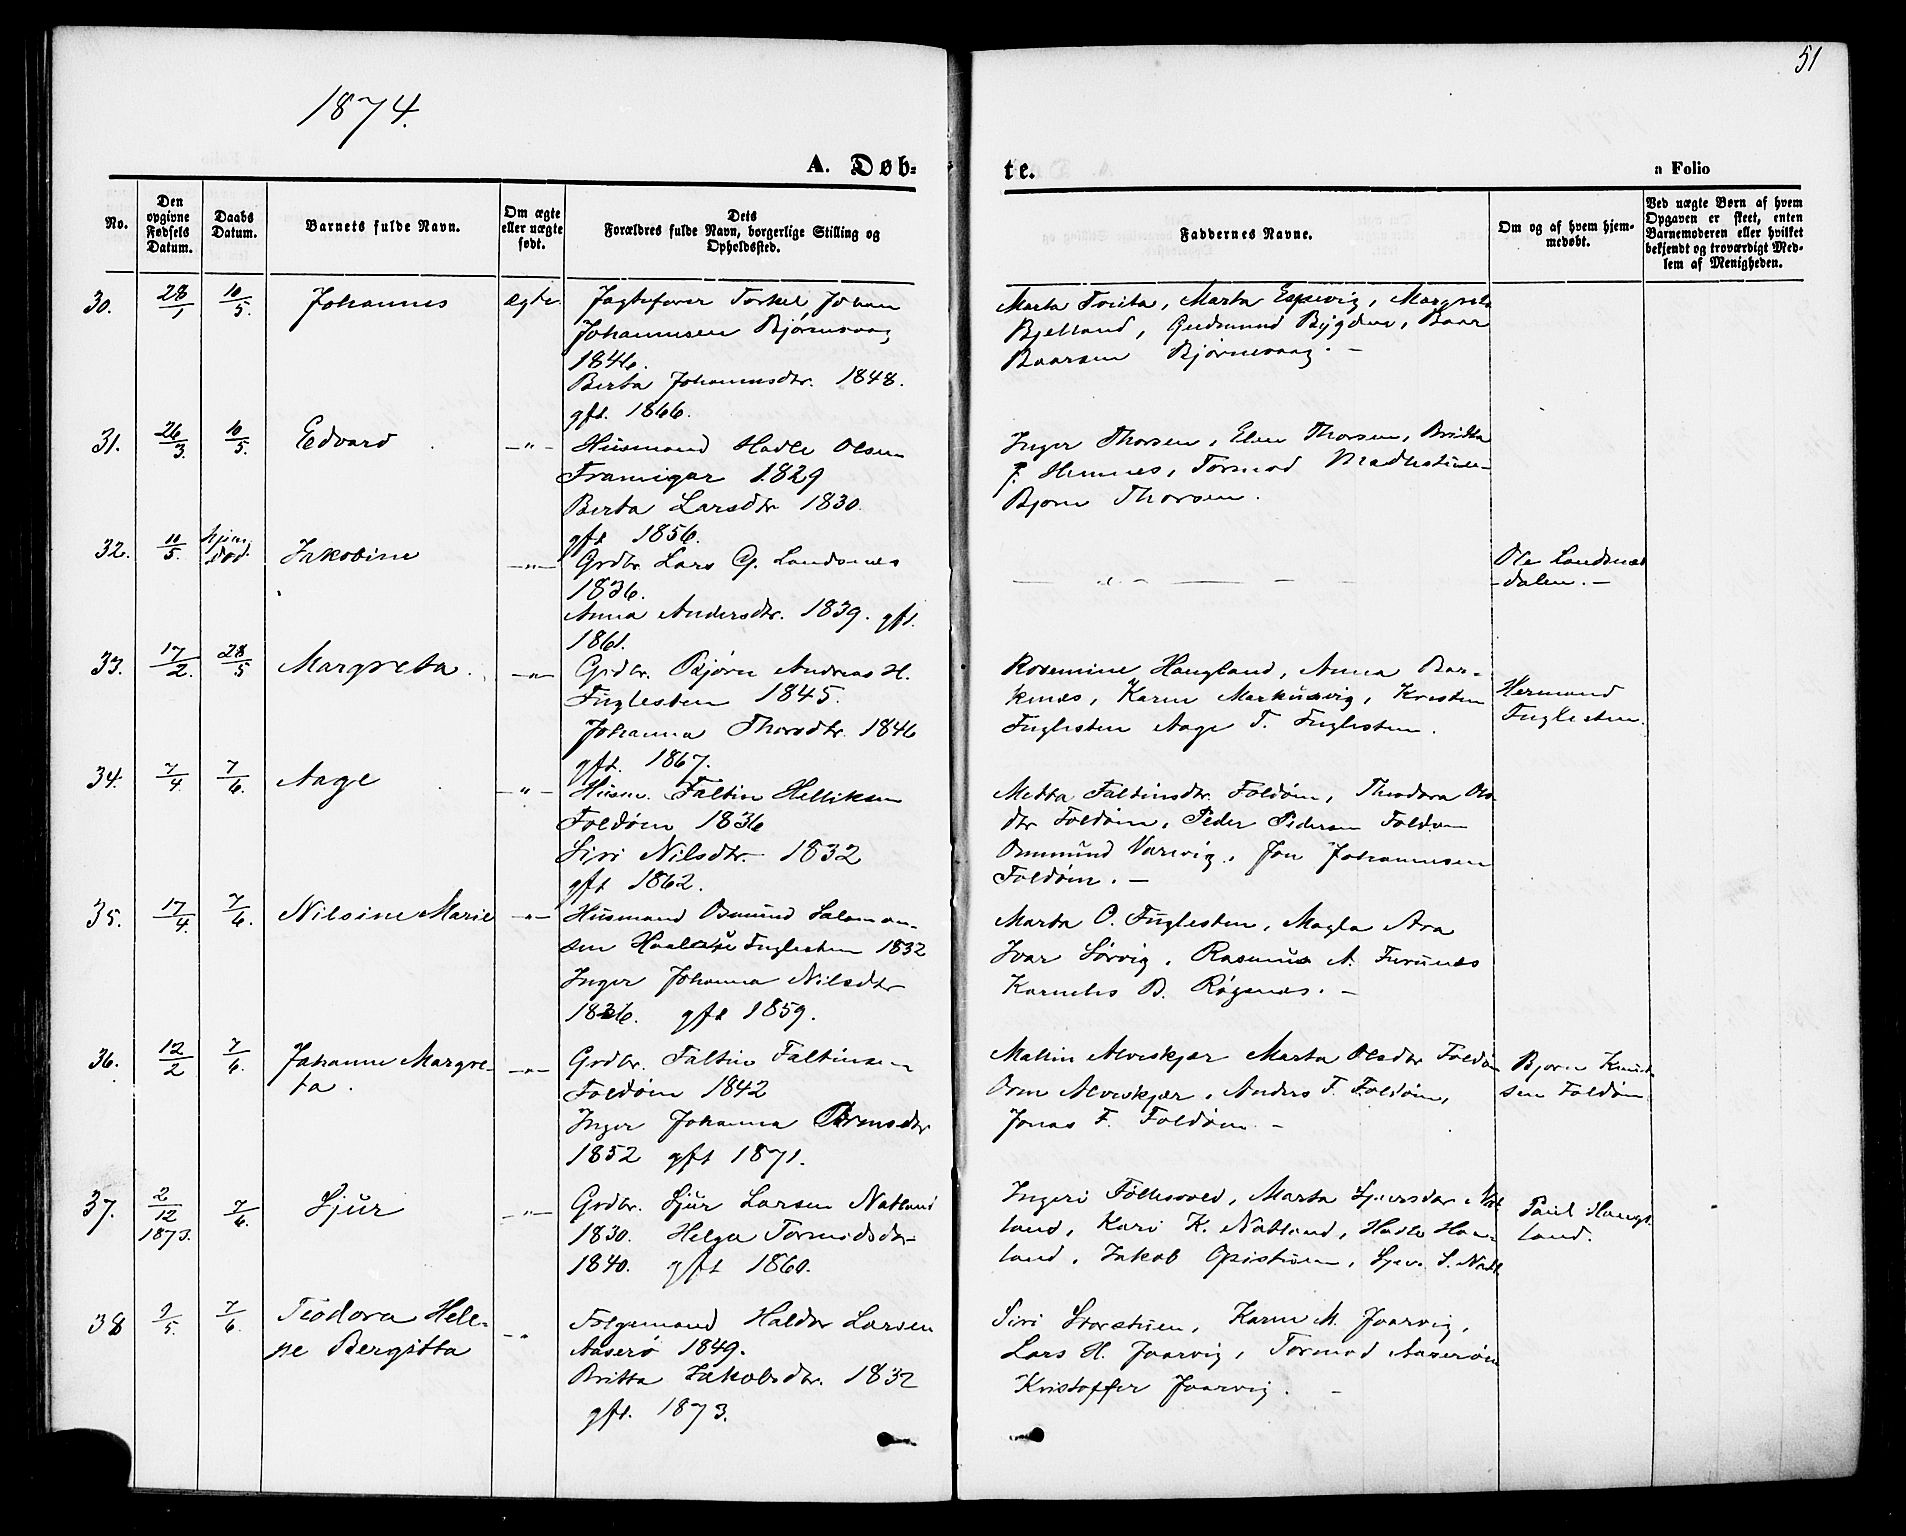 51
1874.
A. Døb-
te.
a Folio
No.
Den
opgivne
Fødsels
Datum.
Daabs
Datum.
Barnets fulde Navn.
Om ægte
eller uægte
født.
Dets
Forældres fulde Navn, borgerlige Stilling og
Opholdssted.
Faddernes Navne.
Om og af hvem hjem-
medøbt.
Ved uægte Børn af hvem
Opgaven er skeet, enten
Barnemoderen eller hvilket
bekjendt og troværdigt Med-
lem af Menigheden.
30. 28/1 10/5. Johannes ægte.
Jagtefører Torkel Johan
Johannesen Bjørnevaag
1846.
Berta Johannesdtr. 1848.
gft. 1866.
Marta Tveita, Marta Espevig, Margreta
Bjelland, Gudmund Bygdnes, Baar
Baarsen Bjørnevaag. -
31. 26/3. 10/5. Edvard -"-
Husmand Hadle Olsen
Framigar 1829
Berta Larsdtr 1830.
gft 1856.
Inger Thorsen, Elen Thorsen, Britta
Hinnes, Tormod
Bjørn Thorsen.
32. 11/5. hjem. død. Jakobine -"-
Grdbr. Lars G. Landsnes
1836.
Anna Andersdtr. 1839. gft.
1861.
Ole Landsnes
dalen. -
33. 17/2. 28/5 Margreta. -"-
Grdbr. Bjørn Andreas H.
Fuglesten 1845.
Johanna Thorsdtr. 1846
gft. 1867.
Rosemine Haugland, Anna Bar-
knes, Karen Markusvig, Kristen
Fuglesten Aage T. Fuglesten.
Hermand
Fuglesten.
34. 7/4. 7/6. Aage -"-
Husm. Faltin Helliksen
Foldøen 1836
Siri Nilsdtr. 1832
gft 1862.
Metta Faltinsdtr. Foldøen, Theodora Ols
dtr Foldøen, Peder Pedersen Foldøen
Ommund Varvig, Jon Johannesen
Foldøen. -
35. 17/4. 7/6. Nilsine Marie -"-
Husmand Osmund Salamon-
sen Fuglesten 1832
Inger Johanna Nilsdtr
1836. gft 1859.
Marta O. Fuglesten, Magla Ara
Ivar Sørvig, Rasmus A. Furunes
Kornelis B. Røgenes. -
36. 12/2 7/6. Johanne Margre-
ta. -"-
Grdbr. Faltin Faltinsen
Foldøen 1842
Inger Johanna Ormsdtr
1852 gft 1871.
Malin Alveskjær Marta Olsdtr Foldøen
Orm Alveskjær, Anders F. Foldøen,
Jonas F. Foldøen. -
Bjørn Knud-
sen Foldøen
37. 2/12 1873. 7/6. Sjur -"-
Grdbr. Sjur Larsen Natland
1830. Helga Tormodsdtr
1840. gft 1860.
Ingeri Følkesvold, Marta Sjursdtr Nat
land, Kari K. Natland, Hadle Hau-
land, Jakob Opistuen, Sjur S. Natl
Paul Haug-
land.
38 2/5. 7/6. Teodora Hele-
ne Bergitta -"-
Følgemand Haldor Larsen
Aaserø 1849.
Britta Jakobsdtr. 1832
gft. 1873.
Siri Storstuen, Karen M. Jaarvig,
Lars H. Jaarvig, Tormod Aaserøen
Kristoffer Jaarvig. -